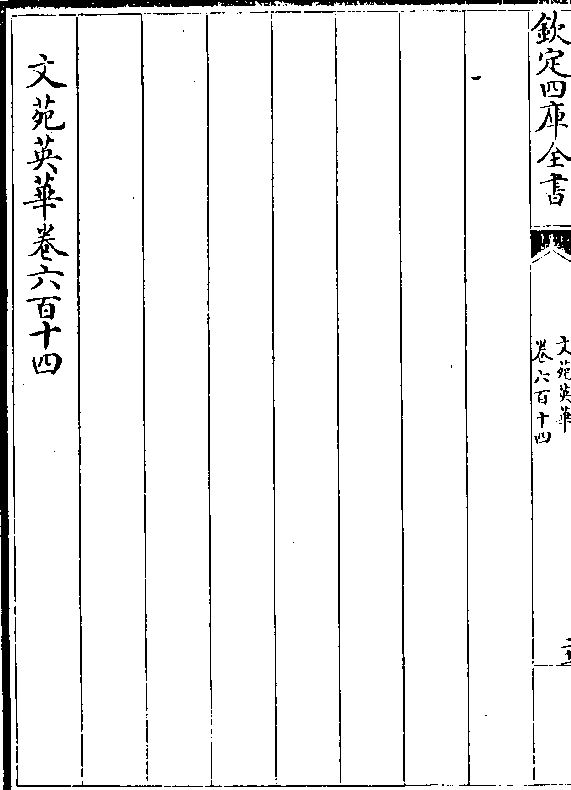 欽定四庫全書
文苑英華
卷六百十四
文苑英華卷六百十四